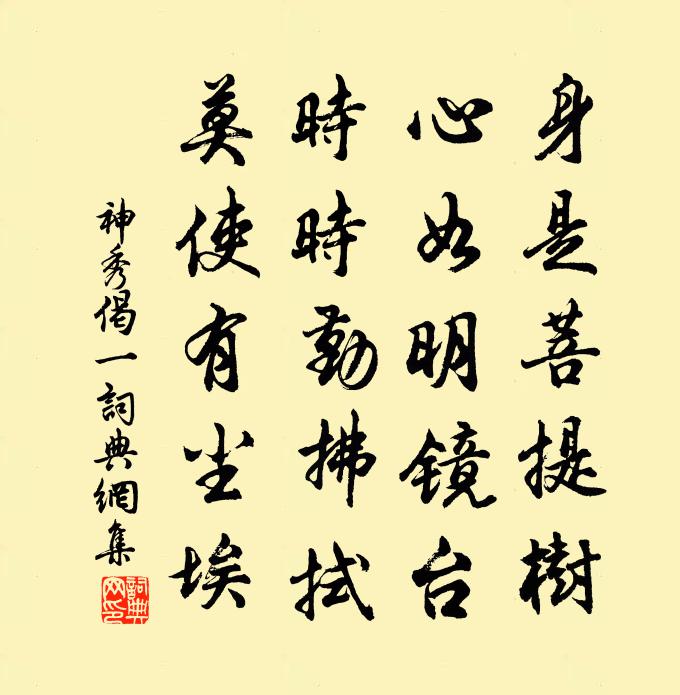 身是菩提樹
心如明镜台
時時勤拂拭
莫使有尘埃
神秀偈一詞典網集
詞典网印